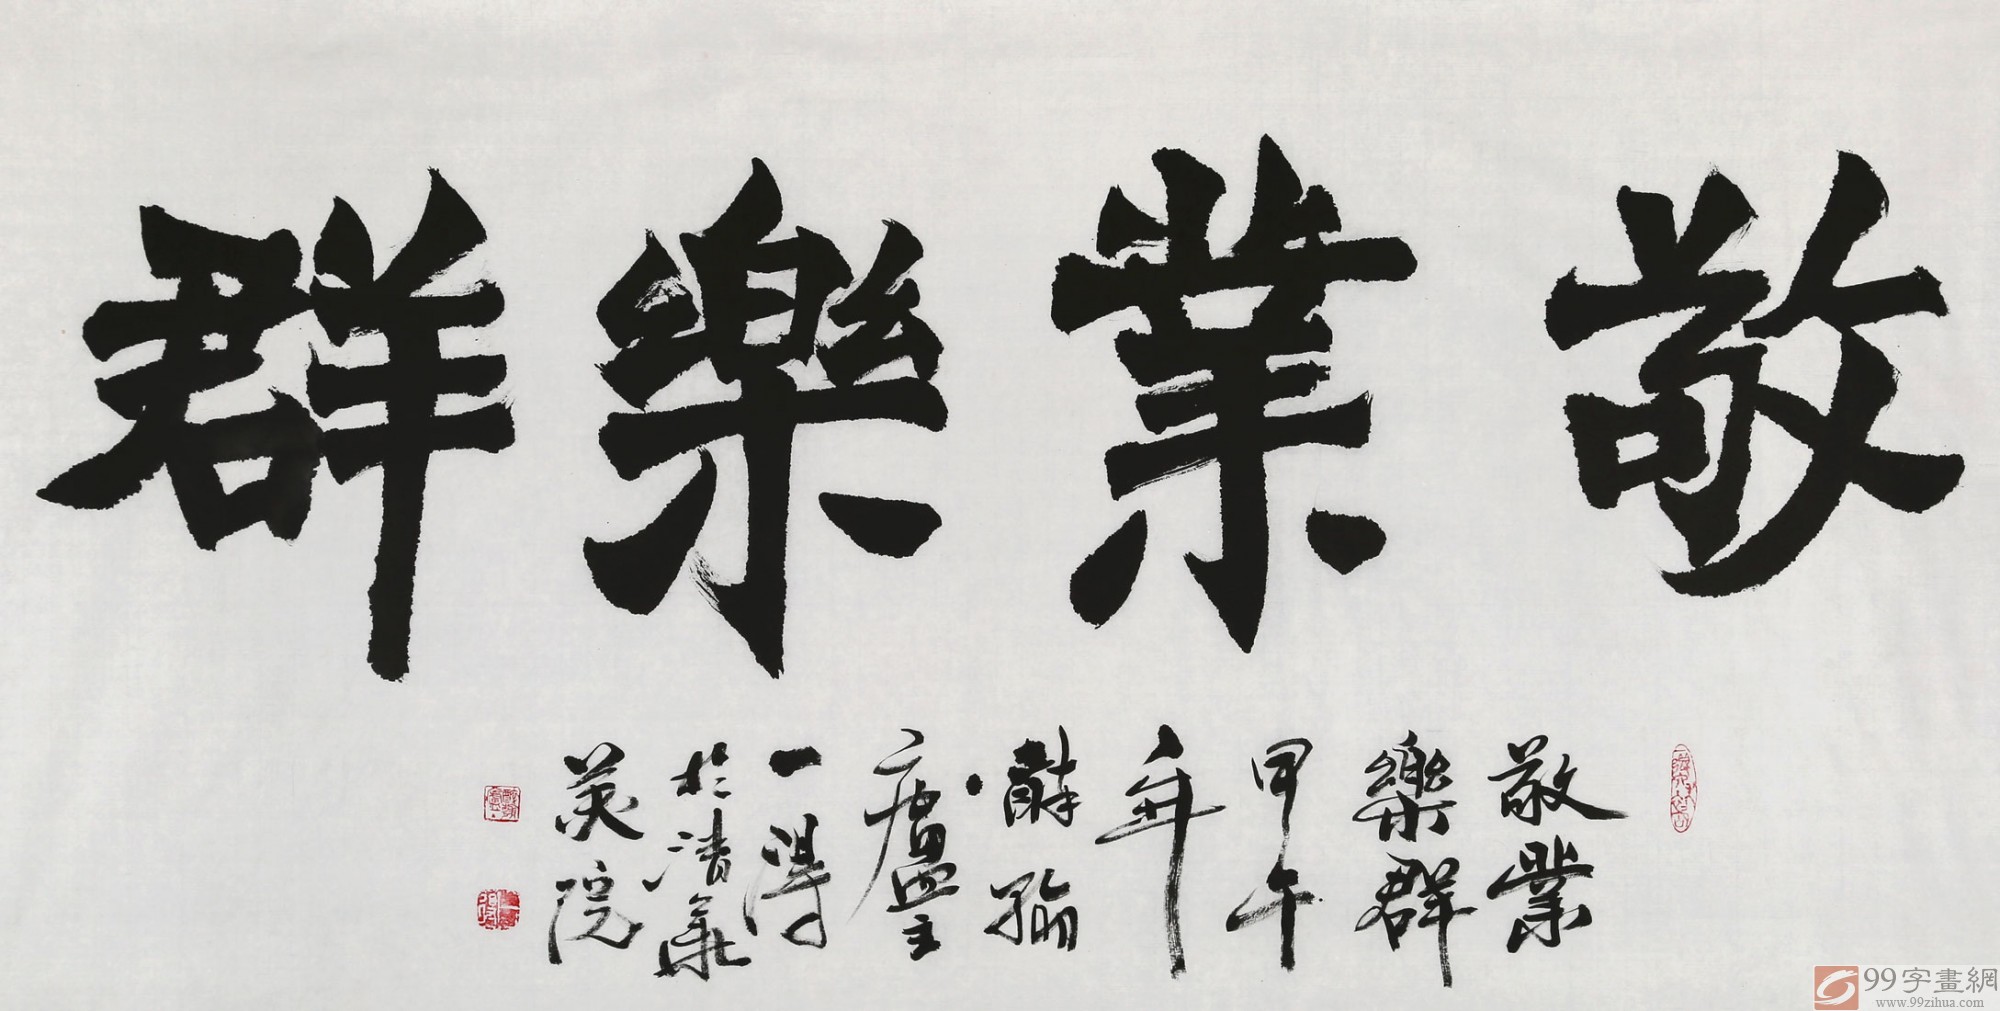 敬業樂群
敬業
樂群
甲午
年
廬主
一得
於清華
美院
99字畫網
www.99zihua.com